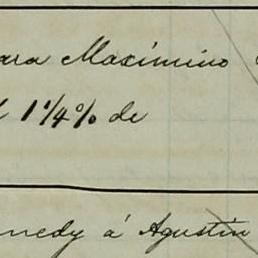 ara Maximino
1 1/4 % de
nedy á Agustin